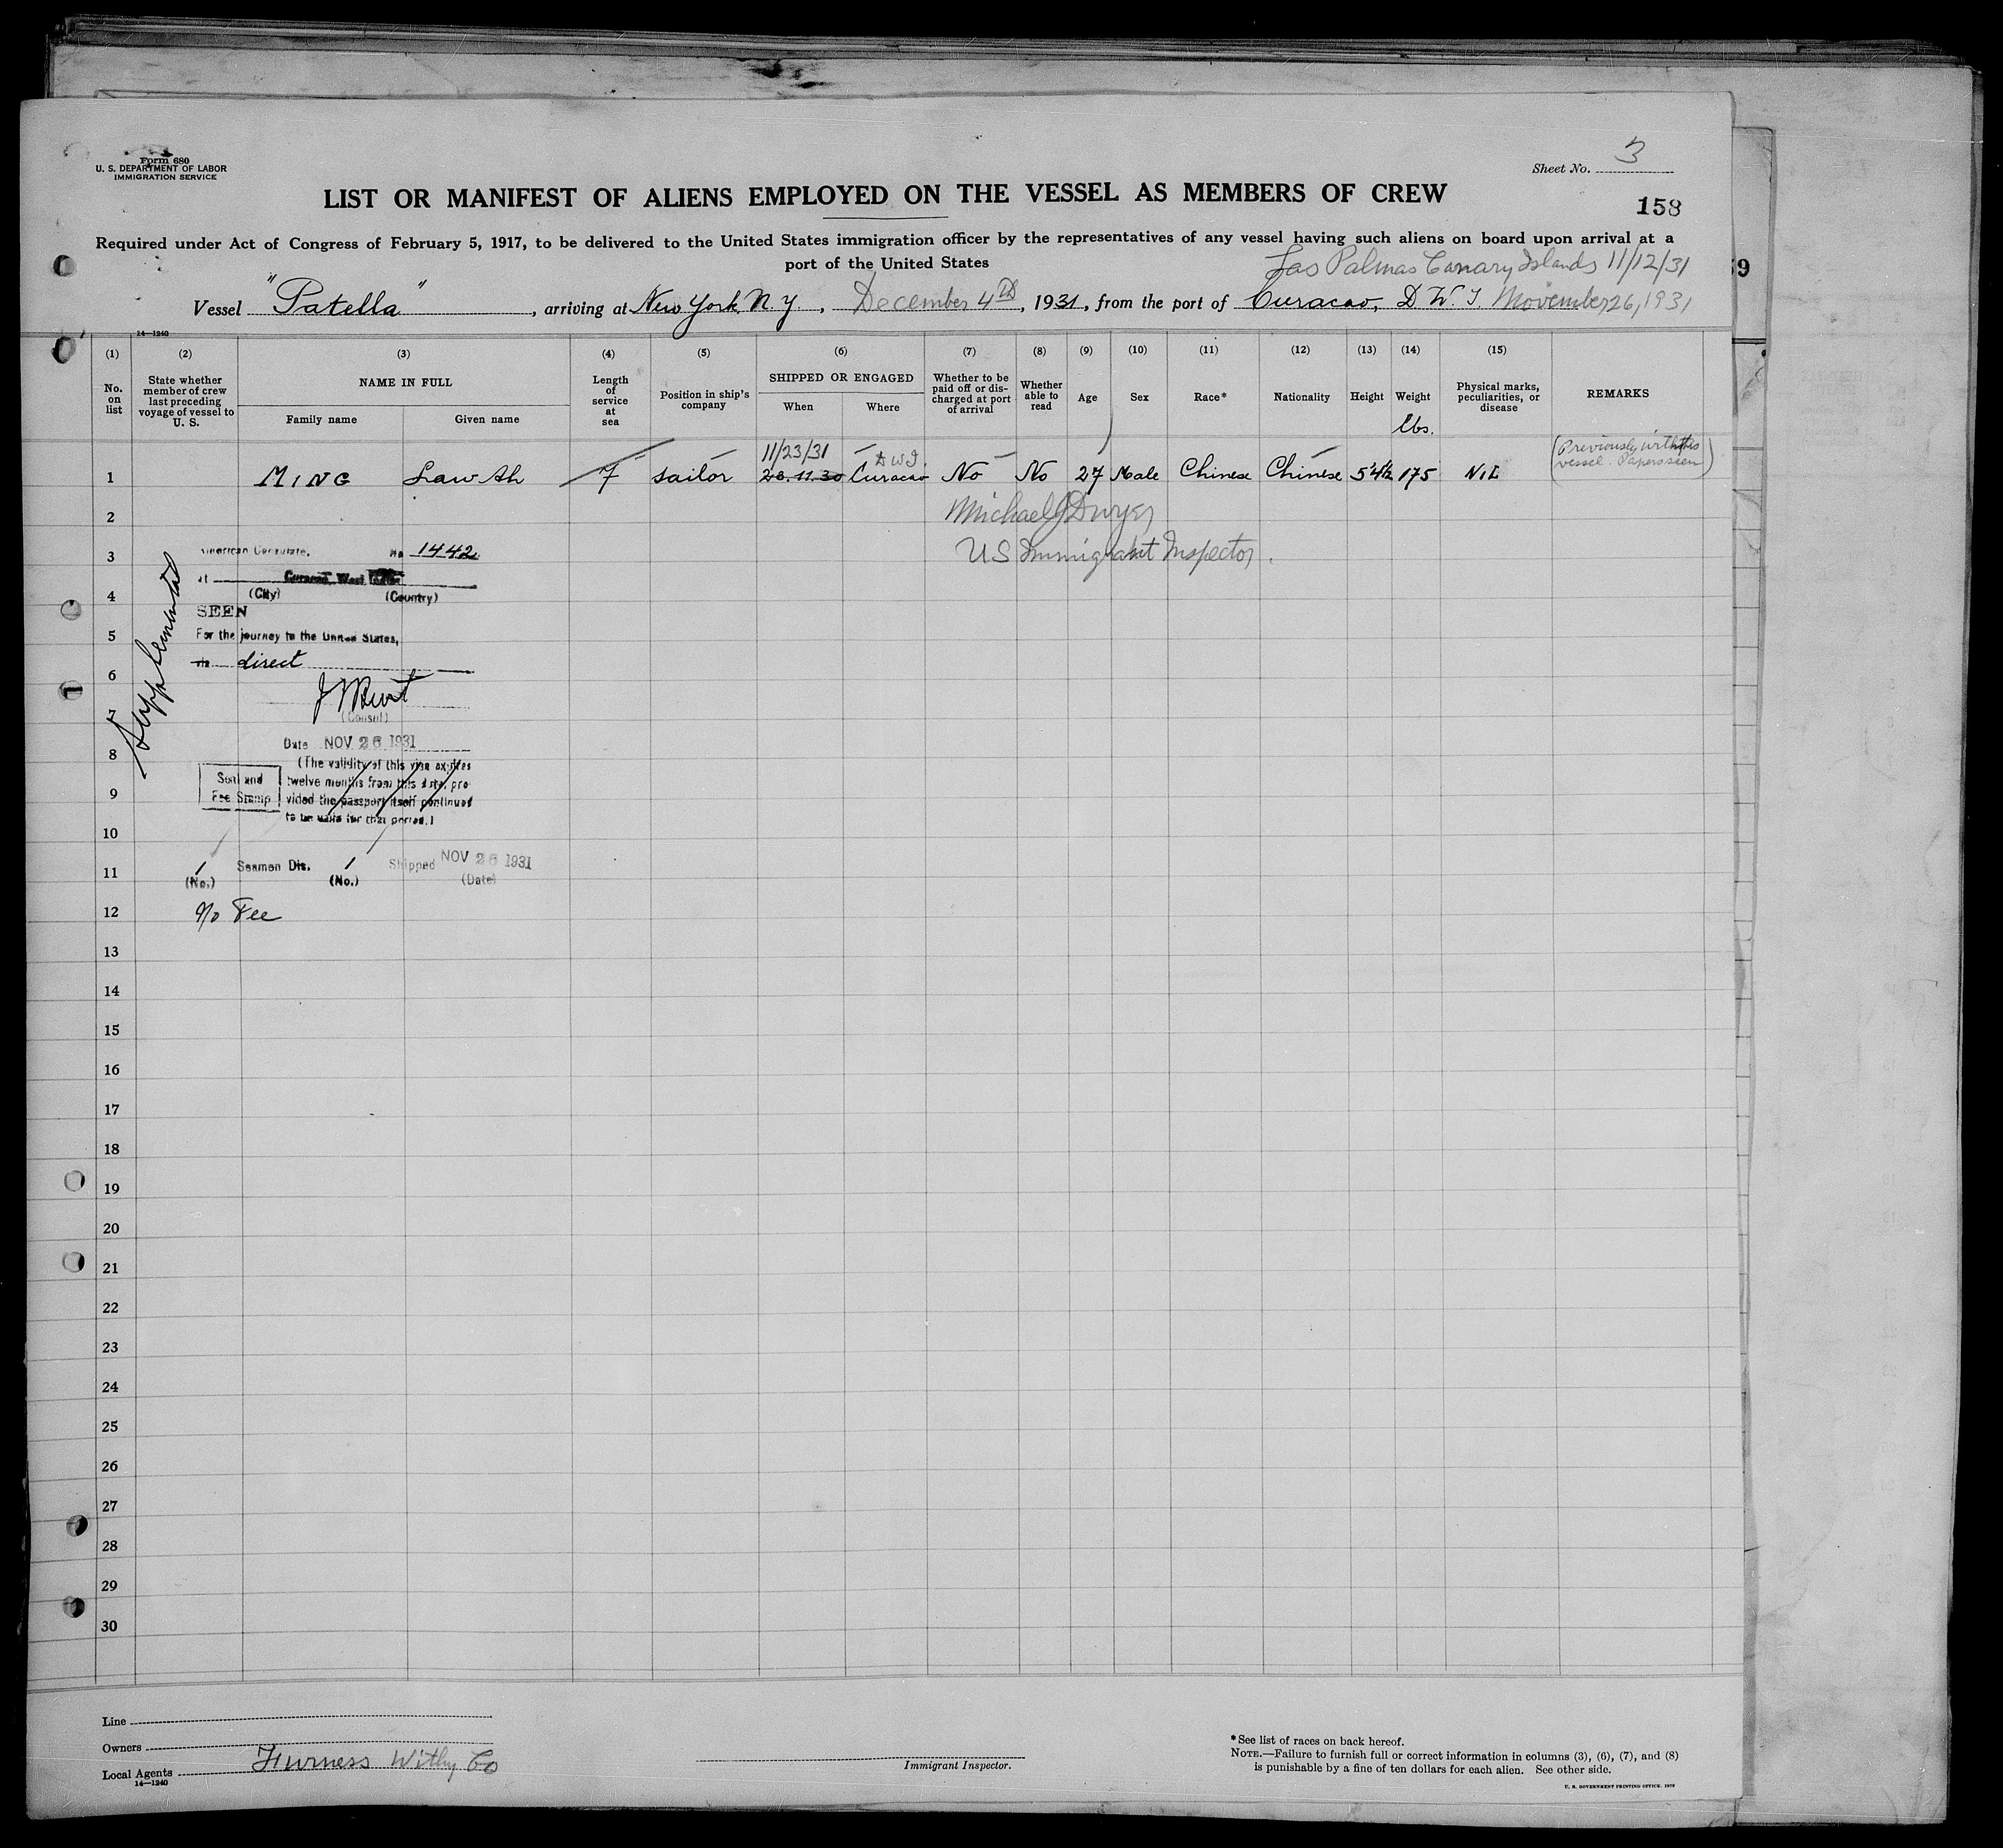 Form 680
U. S. DEPARTMENT OF LABOR
IMMIGRATION SERVICE
Sheet No. 3
LIST OR MANIFEST OF ALIENS EMPLOYED ON THE VESSEL AS MEMBERS OF CREW
158
Required under Act of Congress of February 5, 1917, to be delivered to the United States immigration officer by the representatives of any vessel having such aliens on board upon arrival at a
port of the United States
Las Palmas Canary Islands 11/12/31
59
Vessel "Patella", arriving at New York N.Y., December 4th, 1931, from the port of Curacao, D.W.I. November 26, 1931
14—1240
(1) (2) (3) (4) (5) (6) (7) (8) (9) (10) (11) (12) (13) (14) (15)
No. on list
State whether member of crew last preceding voyage of vessel to U. S.
NAME IN FULL
Family name
Given name
Length of service at sea
Position in ship's company
SHIPPED OR ENGAGED
When
Where
Whether to be paid off or discharged at port of arrival
Whether able to read
Age
Sex
Race*
Nationality
Height
Weight
lbs.
Physical marks, peculiarities, or disease
REMARKS
11/23/31 D.W.I. (Previously with this vessel. Papers seen)
1 MING Law Ah 7 sailor 28.11.30 Curacao No No 27 Male Chinese Chinese 5'4½ 175 NIL
2 Michael J Dwyer
3 American Consulate, No 1442 US Immigrant Inspector.
at Curacao, West Indies
4 (City) (Country)
SEEN
5 For the journey to the United States,
via direct
6
7
(Consul)
Supplemental
8 Date NOV 26 1931
(The validity of this visa expires
9 Seal and Fee Stamp twelve months from this date, provided the passport itself continued
to be valid for that period.)
10
11 1 Seamen Dis. 1 Shipped NOV 26 1931
(No.) (No.) (Date)
12 No Fee
13
14
15
16
17
18
19
20
21
22
23
24
25
26
27
28
29
30
Line
Owners
Local Agents Furness Withy Co
14—1240
Immigrant Inspector.
*See list of races on back hereof.
NOTE.—Failure to furnish full or correct information in columns (3), (6), (7), and (8)
is punishable by a fine of ten dollars for each alien. See other side.